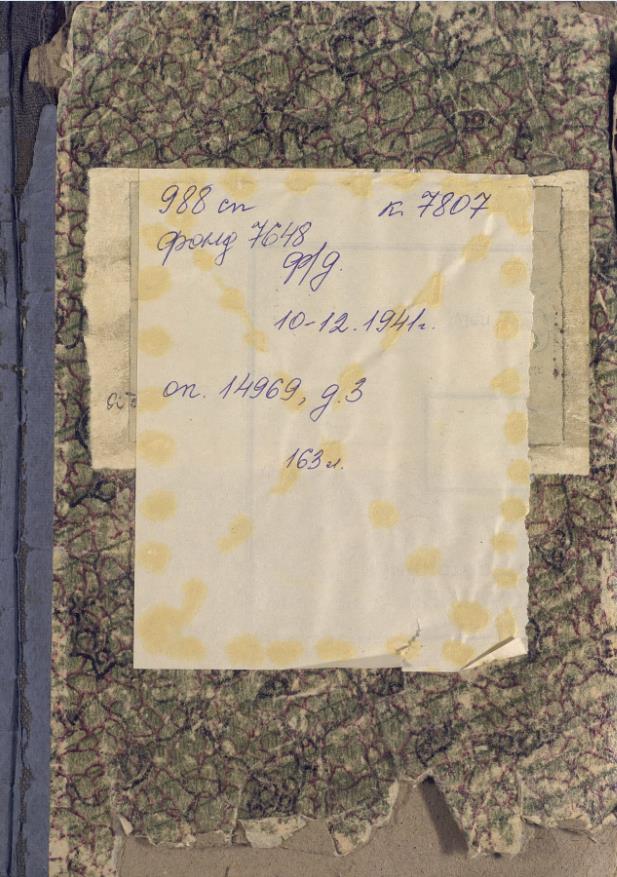 988 сп к. 7807
фонд 7648
ф/д.
10-12.1941г.
оп. 14969, д.3
163 л.